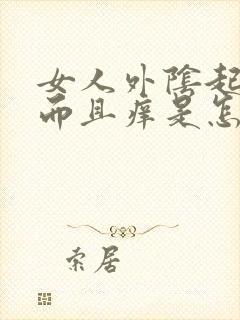 女人外陰起
而且痒是怎
索居